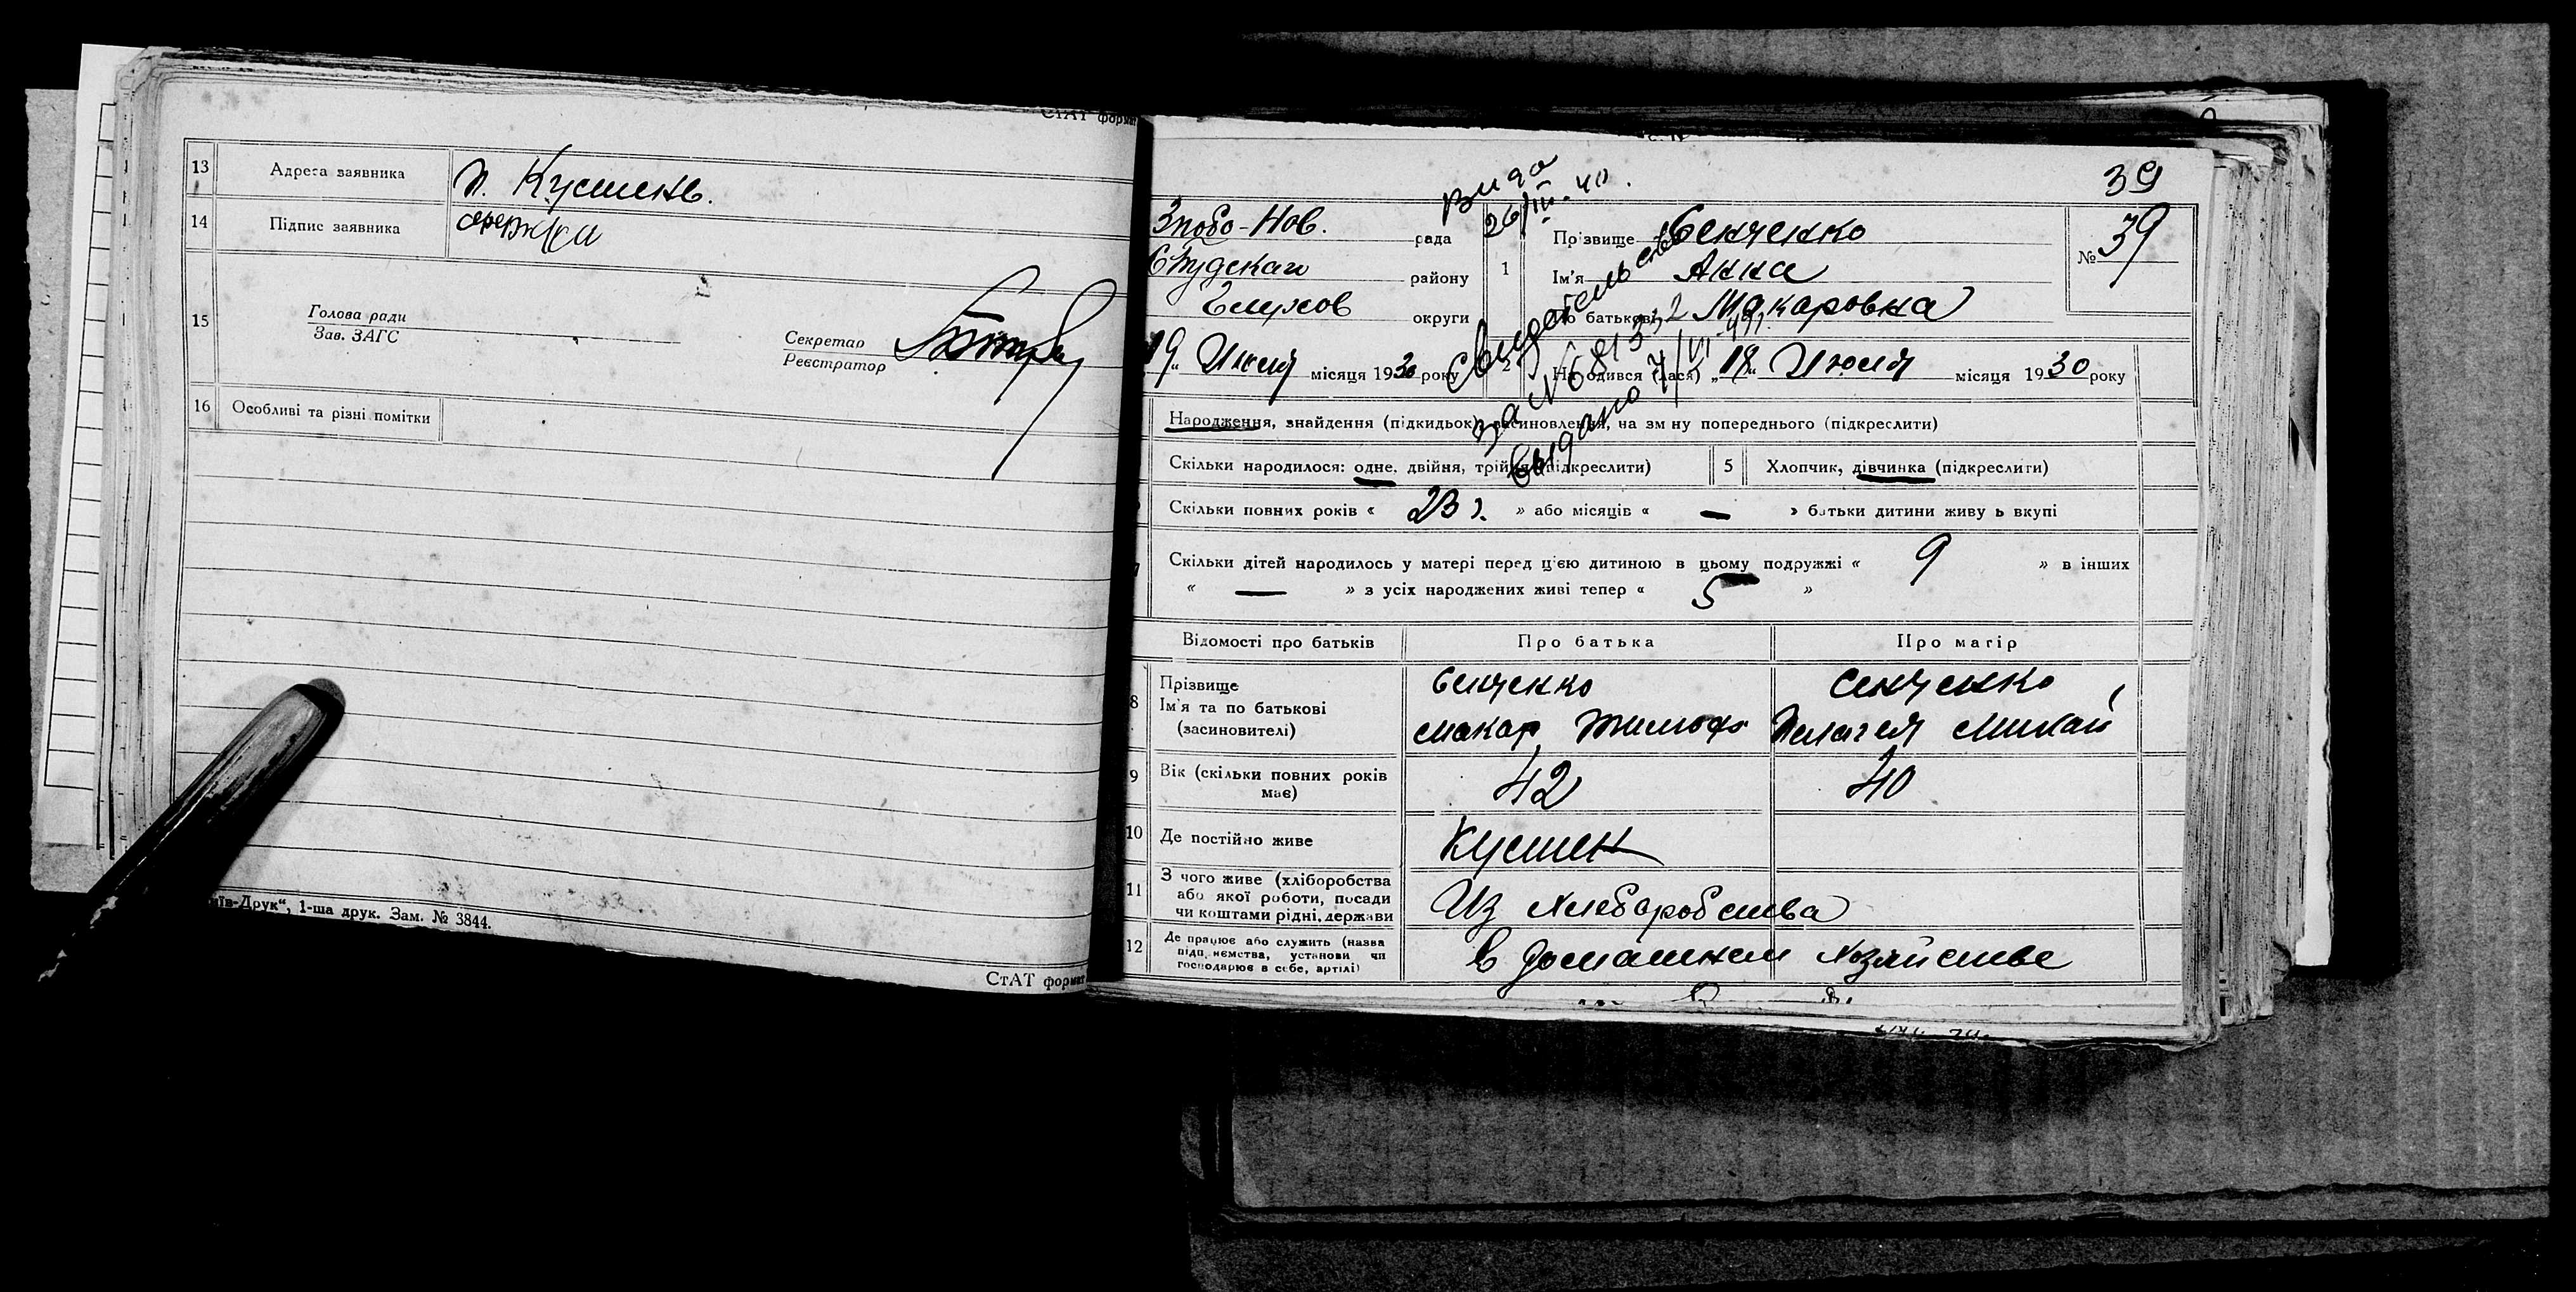 СтАТ форма
13 Адреса заявника п. Кусшень.
14 Підпис заявника
15 Голова ради
Зав. ЗАГС
Секретар
Реєстратор
16 Особливі та різні помітки
їв-Друк“, 1-ша друк. Зам. № 3844.
СтАТ формат
39
Вида
26/III. 40.
Зтобо-Нов. рада
району
Глухов округи
19 Июля місяця 1930 року
Свидетельство
за № 681332
Выдано 4/VI
№ 39
1 Прізвище Сенченко
Ім'я Анна
по батькові Макаровна
2 Народився (лася) „18“ Июля місяця 1930 року
Народження, знайдення (підкидьок), засиновлення, на зм ну попереднього (підкреслити)
Скільки народилося: одне, двійня, трійня (підкреслити) 5 Хлопчик, дівчинка (підкреслити)
Скільки повних років « 23 г. » або місяців « — » батьки дитини живу ь вкупі
Скільки дітей народилось у матері перед цією дитиною в цьому подружжі « 9 » в інших
« — » з усіх народжених живі тепер « 5 »
Відомості про батьків Про батька Про матір
8 Прізвище Сенченко Сенченко
Ім'я та по батькові
(засновителі) Макар Тимофе Пелагея Михай
9 Вік (скільки повних років має) 42 40
10 Де постійно живе Кусшен
11 З чого живе (хліборобства
або якої роботи, посади
чи коштами рідні, держави Из хлеборобства
12 Де працює або служить (назва
підприємства, установи чи
господарює в себе, артілі) в домашнем хозяйстве